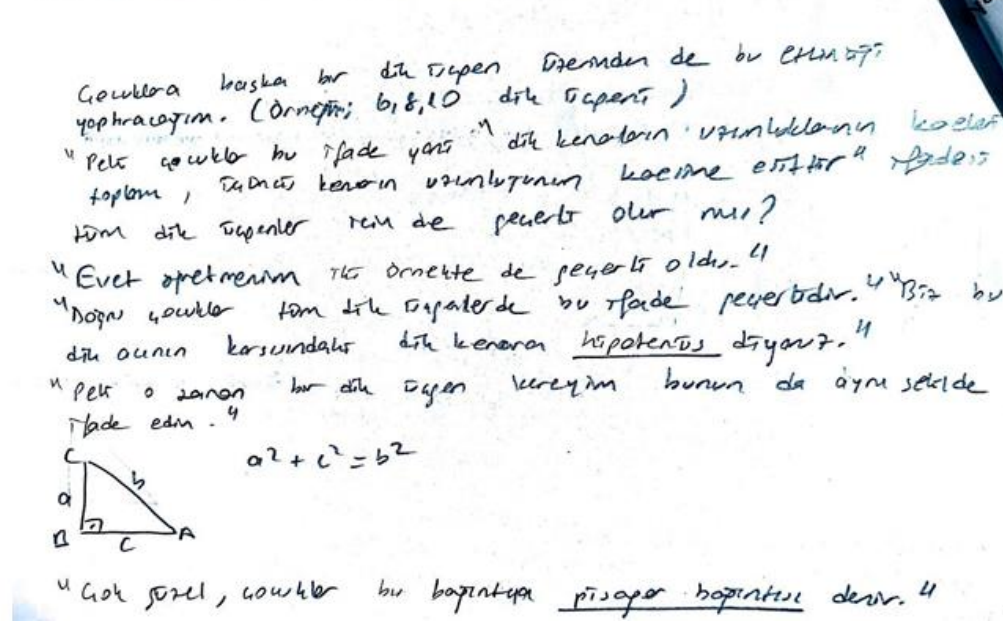 Çocuklara başka bir dik üçgen üzerinden de bu etkinliği
yaptıracağım. (Örneğin; 6,8,10 dik üçgeni)
"Peki çocuklar bu ifade yani "dik kenarların uzunluklarının kareleri
toplamı, üçüncü kenarın uzunluğunun karesine eşittir" ifadesi
tüm dik üçgenler için de geçerli olur mu?
"Evet öğretmenim iki örnekte de geçerli oldu."
"Doğru çocuklar tüm dik üçgenlerde bu ifade geçerlidir." "Biz bu
dik açının karşısındaki dik kenara hipotenüs diyoruz."
"Peki o zaman bir dik üçgen vereyim bunun da aynı şekilde
ifade edin."
a² + c² = b²
C
a b
B c A
"Çok güzel, çocuklar bu bağıntıya pisagor bağıntısı denir."